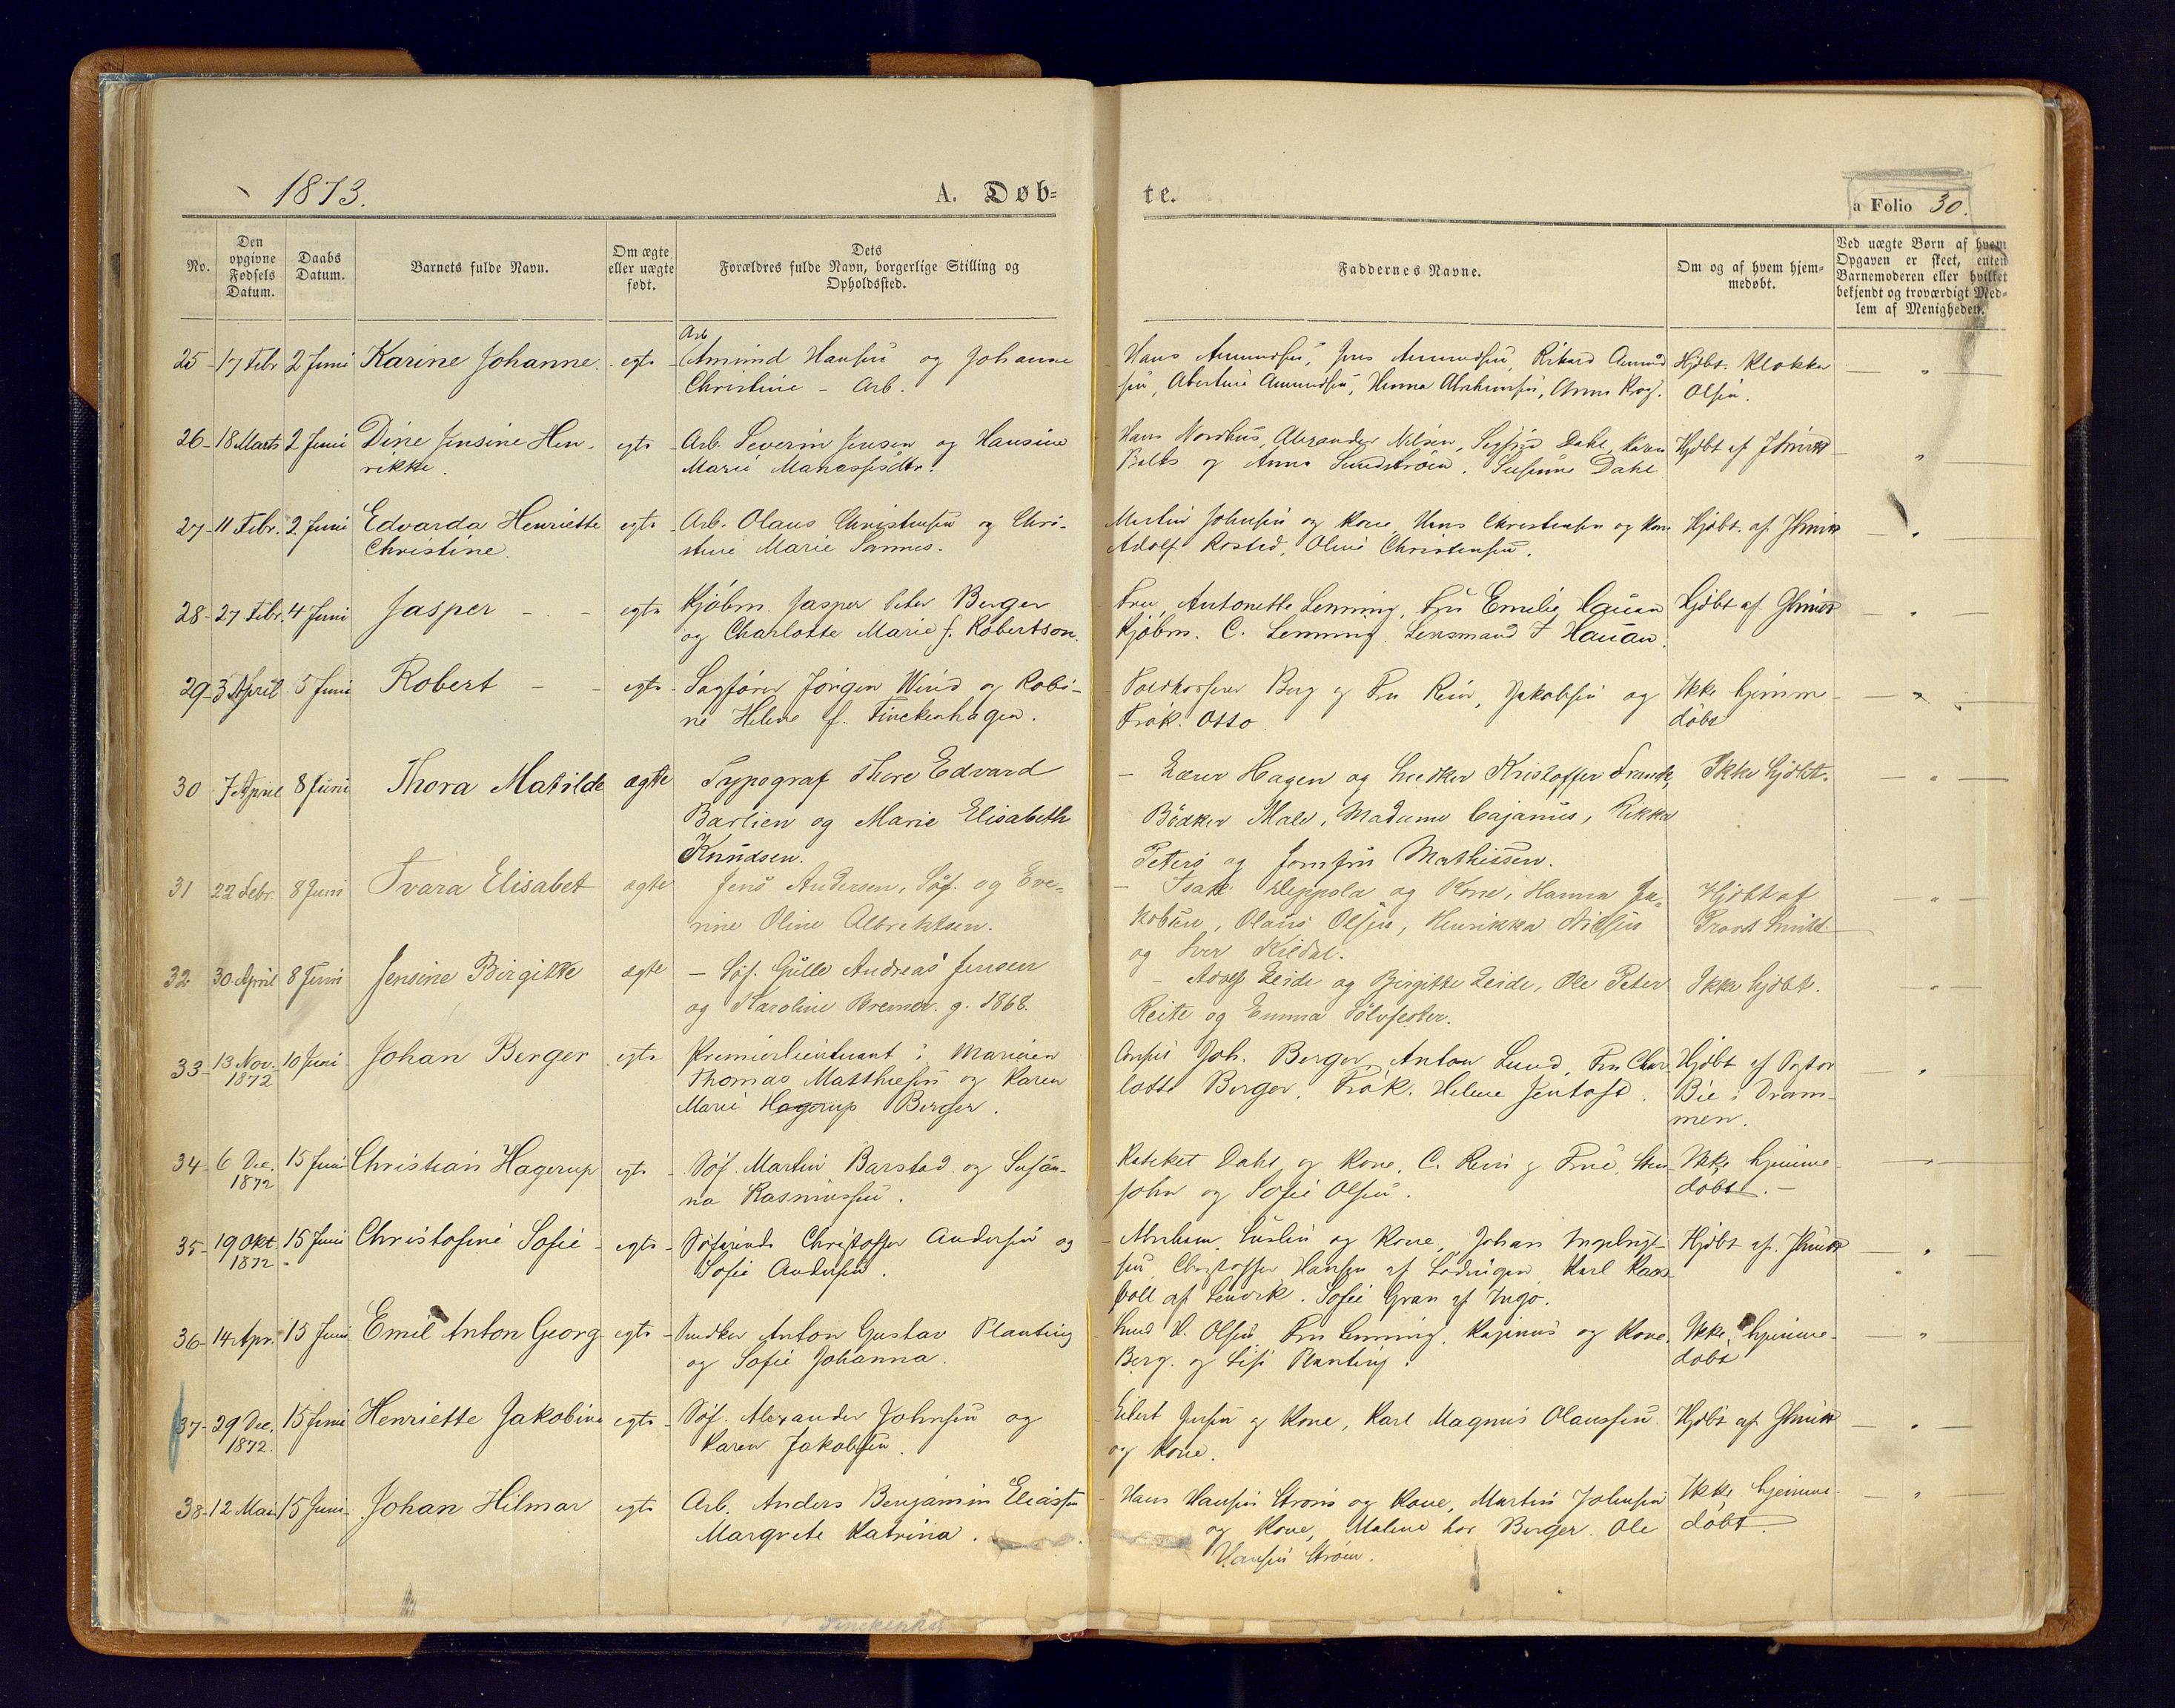 1873.
A. Døb-
te.
a Folio 30.
No.
Den opgivne Fødsels Datum.
Daabs Datum.
Barnets fulde Navn.
Om ægte eller uægte født.
Dets Forældres fulde Navn, borgerlige Stilling og Opholdssted.
Faddernes Navne.
Om og af hvem hjem-
medøbt.
Ved uægte Børn af hvem
Opgaven er skeet, enten
Barnemoderen eller hvilket
bekjendt og troværdigt Med-
lem af Menigheden.
Arb
25 - 17 Febr 2 Juni Karine Johanne. egte Amund Hansen og Johanne Hans Amundsen, Jens Amundsen, Rikard Amund Hjdbt. Klokker
Christine - Arb. sen, Abertine Amundsen, Hanna Abrahamsen, Olsen.
26 - 18 Marts 2 Juni Dine Jensine Hen- egte Arb. Severin Jensen og Hansine Hans Nordhus, Alexander Nilsen, Dahl, Karen Hjdbt af
rikke. Marie Manassesdtr. og Anna Sundström. Susanne Dahl
27 - 11 Febr. 2 Juni Edvarda Henriette egte Arb. Olaus Christensen og Chri- Martin Johnsen og Kone, Hans Christensen og Kone Hjdbt. af
Christine. stine Marie Sannes. Adolf Rostad, Oline Christensen.
28 - 27 Febr. 4 Juni Jasper - - egte Kjøbm. Jasper Peter Berger Fru Antonette Lemming, Fru Emilie Hauan Hjdbt af
og Charlotte Marie f. Robertson. Kjøbm. C. Lemming. Lensmand J Hauan.
29 - 3 April 5 Juni Robert - - egte Sagfører Jörgen Wind og Robi- Toldkasserer Berg og Fru Rein, Jakobsen og Ikke hjemme-
ne Helene f. Finckenhagen. Frøk. Otto. døbt
30 7 April 8 Juni Thora Matilde ægte Typograf Thore Edvard - Lærer Hagen og Snedker Kristoffer Ikke hjdbt.
Barlien og Marie Elisabeth Bödker Male, Madame Cajanus, Rikka
Knudsen. Peters og Jomfru Mathissen.
31 22 Febr. 8 Juni Svara Elisabet ægte Jens Andersen, Söf. og Eve- - Isak Heppola og Kone, Hanna Ja- Hjdbt af
rine Oline Albrektsen. kobsen, Olaus Olsen, Henrikka Nielsen Provst
og Kildal.
32 30 April 8 Juni Jensine Birgitte ægte - Söf. Gulle Andreas Jensen - Adolf Zeide og Birgitte Zeide, Ole Peter Ikke hjdbt.
og Karoline Bremer. g. 1868. Reite og Emma Sölvfester.
33 - 13 Nov. 1872 10 Juni Johan Berger egte Premierlieutenant i Marinen Consul Joh. Berger, Anton Lund, Fru Char- Hjdbt af Pastor
Thomas Matthiesen og Karen lotte Berger. Frøk. Helene Jentoft. Bie i Dram-
Marie Hagerup Berger. men.
34 - 6 Dec. 1872 15 Juni Christian Hagerup egte Söf. Martin Barstad og Susan- Dahl og Kone, C. Rein og Frue, Ikke hjemme-
na Rasmussen. og Sofie Olsen. døbt. -
35 - 19 Okt. 1872 15 Juni Christofine Sofie - egte Söfarende Christoffer Andersen og - Abraham og Kone, Johan Ingebrigt- Hjdbt af
Sofie Andersen. sen, Christoffer Hansen af Lödingen, Karl
af Lenvik. Sofie Gran af Ingö.
36 - 14 Apr. 15 Juni Emil Anton Georg egte Snedker Anton Gustav Planting Olsen, Fru Lemming, Kajanus og Kone. Ikke hjemme-
og Sofie Johanna. Berg. og Planting. døbt
37 - 29 Dec. 1872. 15 Juni Henriette Jakobine egte Söf. Alexander Johnsen og Eilert Jensen og Kone, Karl Magnus Olaussen Hjdbt af
Karen Jakobsen. og Kone.
38 - 12 Mai 15 Juni Johan Hilmar egte Arb. Anders Benjamin Eliassen Hans Hansen Ström og Kone, Martin Johnsen Ikke hjemme-
Margrete Katrina. og Kone, Malene hos Berger. Ole døbt.
Hansen Ström.